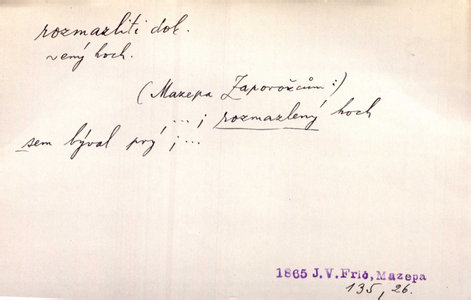 rozmazliti dok.
~ený hoch.
(Mazepa Záporožcům:)
...; rozmazlený hoch
sem býval prý; ...
1865 J.V.Frič, Mazepa
135, 26.